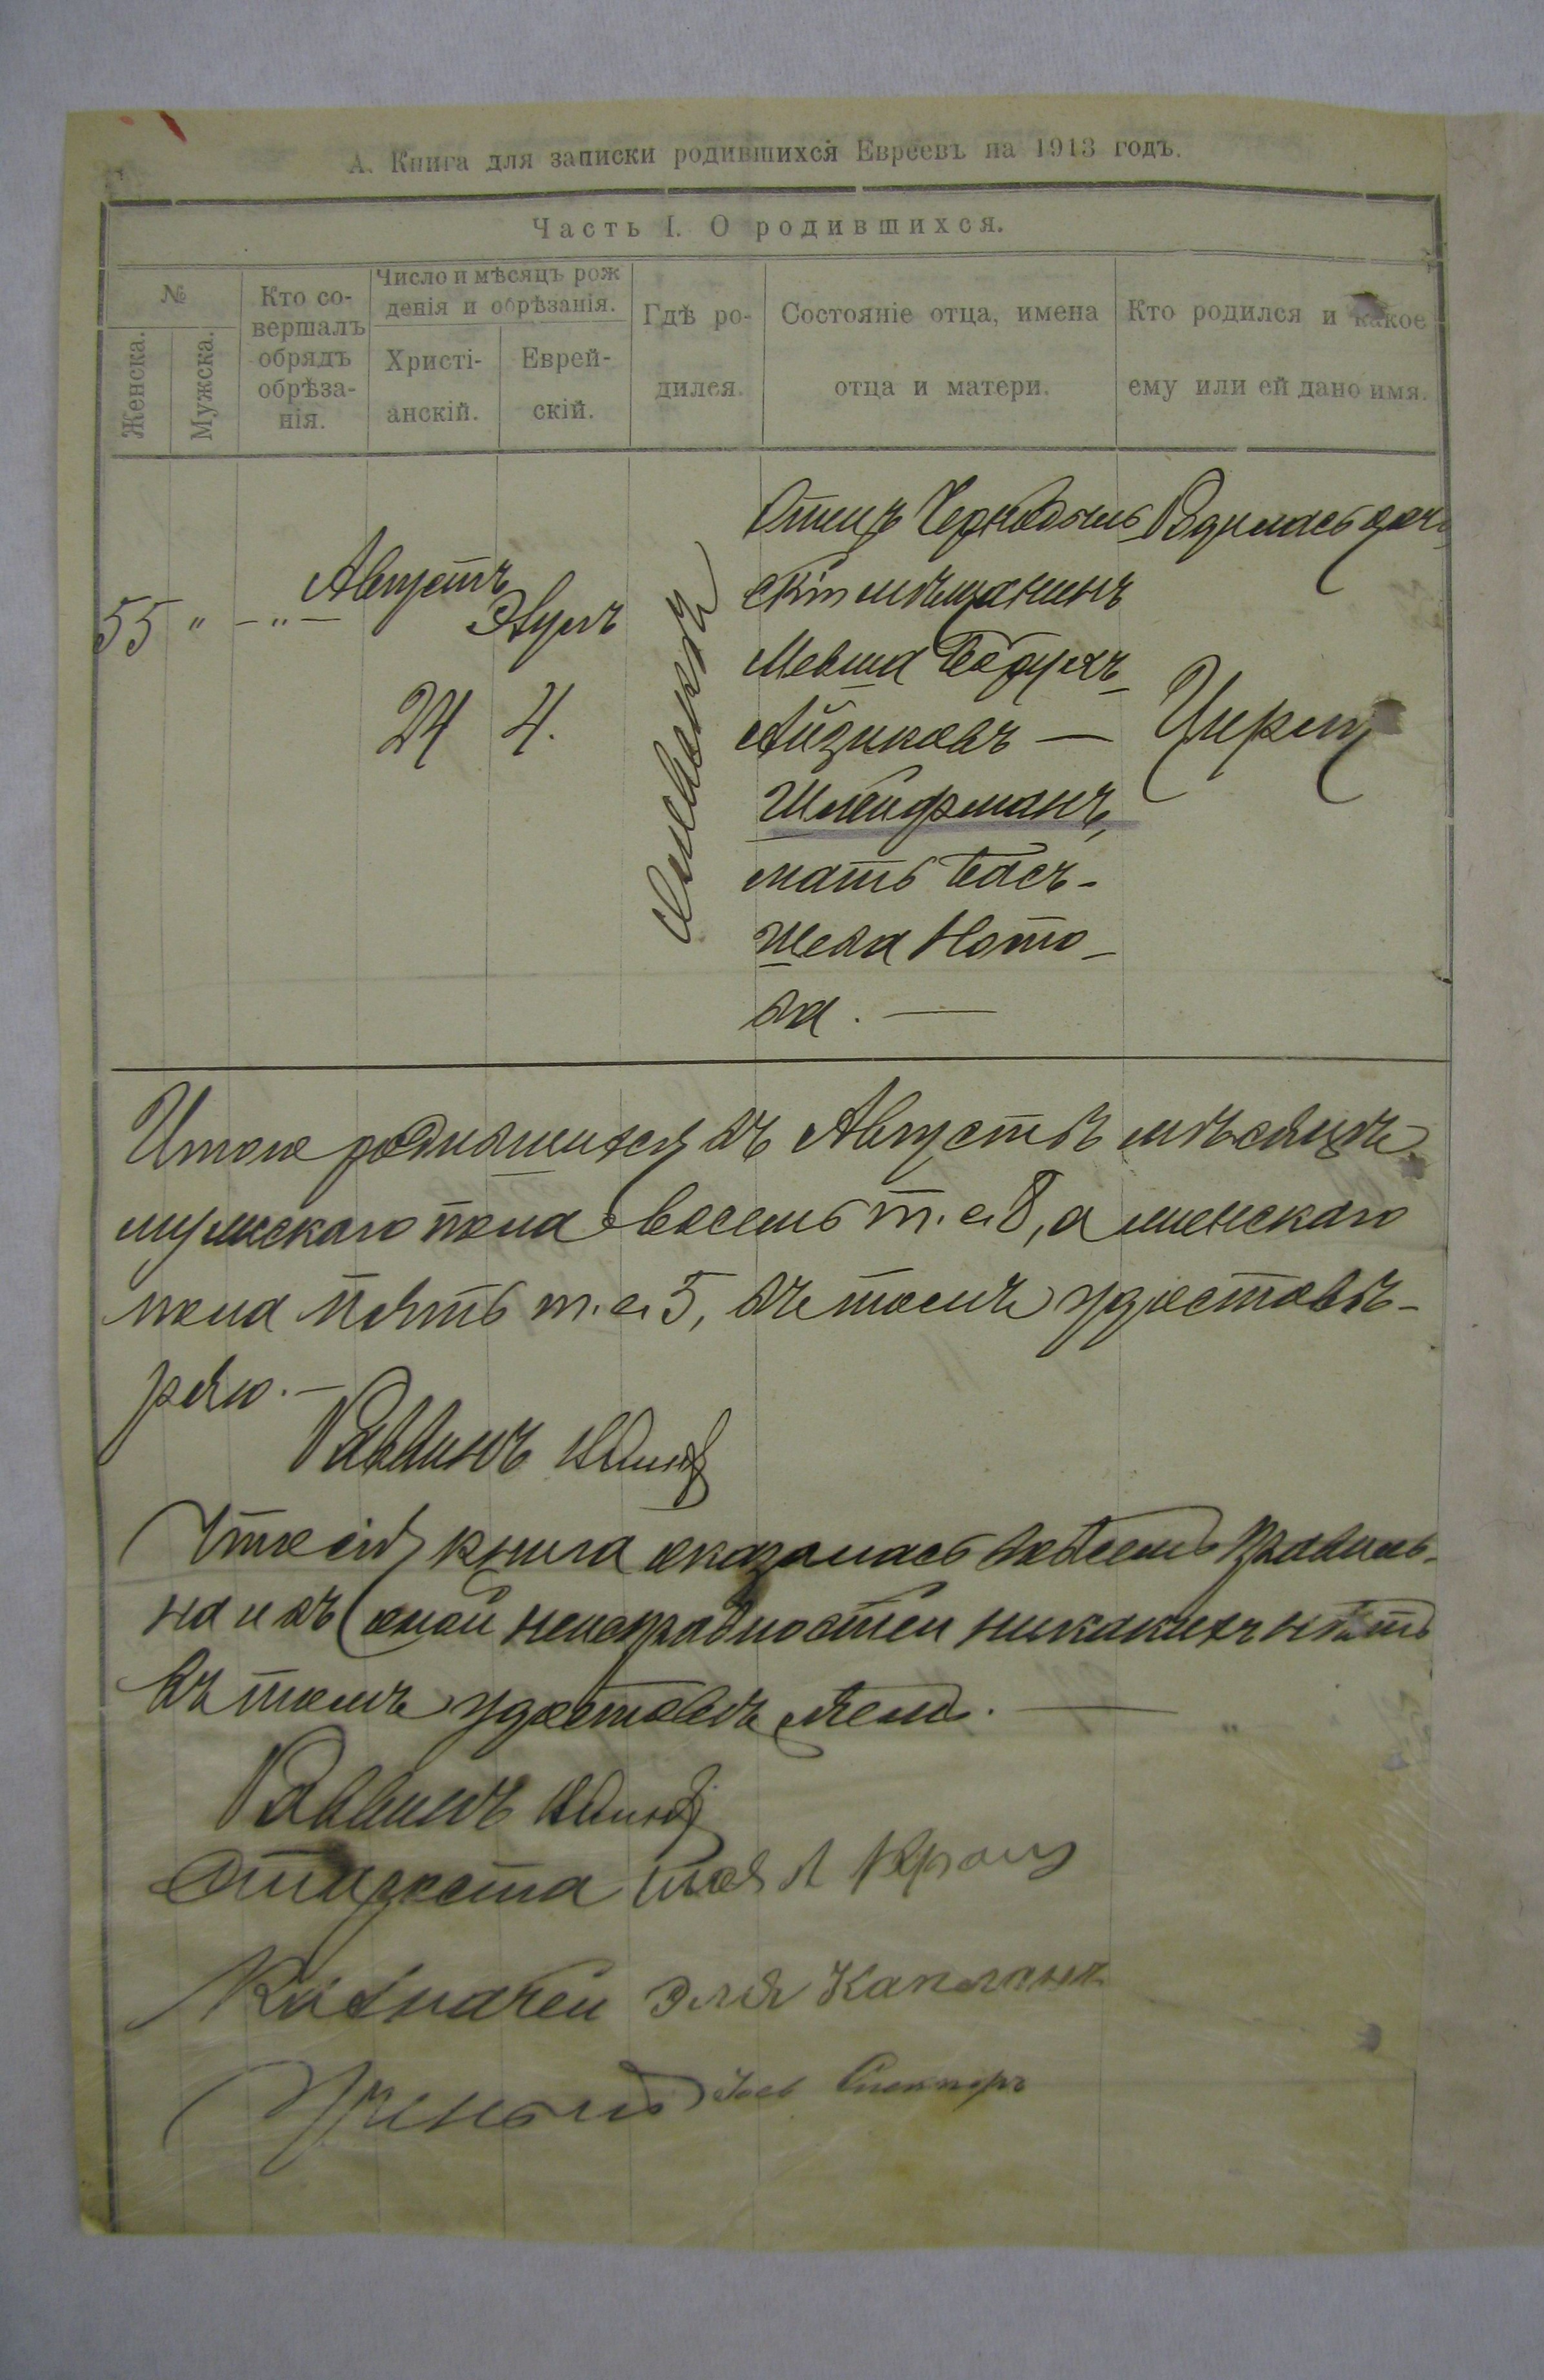 А. Книга для записки родившихся Евреевъ на 1913 годъ.
Часть I. О родившихся.
№
Женска.
Мужска.
Кто со-
вершалъ
обрядъ
обрѣза-
нія.
Число и мѣсяцъ рож
денія и обрѣзанія.
Христі-
анскій.
Еврей-
скій.
Гдѣ ро-
дился.
Состояніе отца, имена
отца и матери.
Кто родился и какое
ему или ей дано имя.
55 " — " —
Августъ
24
Элулъ
4.
Отецъ
скій мѣщанинъ
Мовша Борухъ-
Айзиковъ —
Шлейфманъ,
мать Бася-
Шева Ното-
ва. —
Родилась дочь
Цирля
Итого родившихся въ Августѣ мѣсяцѣ
мужскаго пола восемь т. е. 8, а женскаго
пола пять т. е. 5, въ томъ удостовѣ-
ряю. —
Раввинъ
Что сія книга оказалась во всемъ правиль-
на и въ оной неисправностей никакихъ нѣтъ
въ томъ удостовѣряемъ. —
Раввинъ
Староста
Казначей Эля Капланъ
Ученый Спекторъ